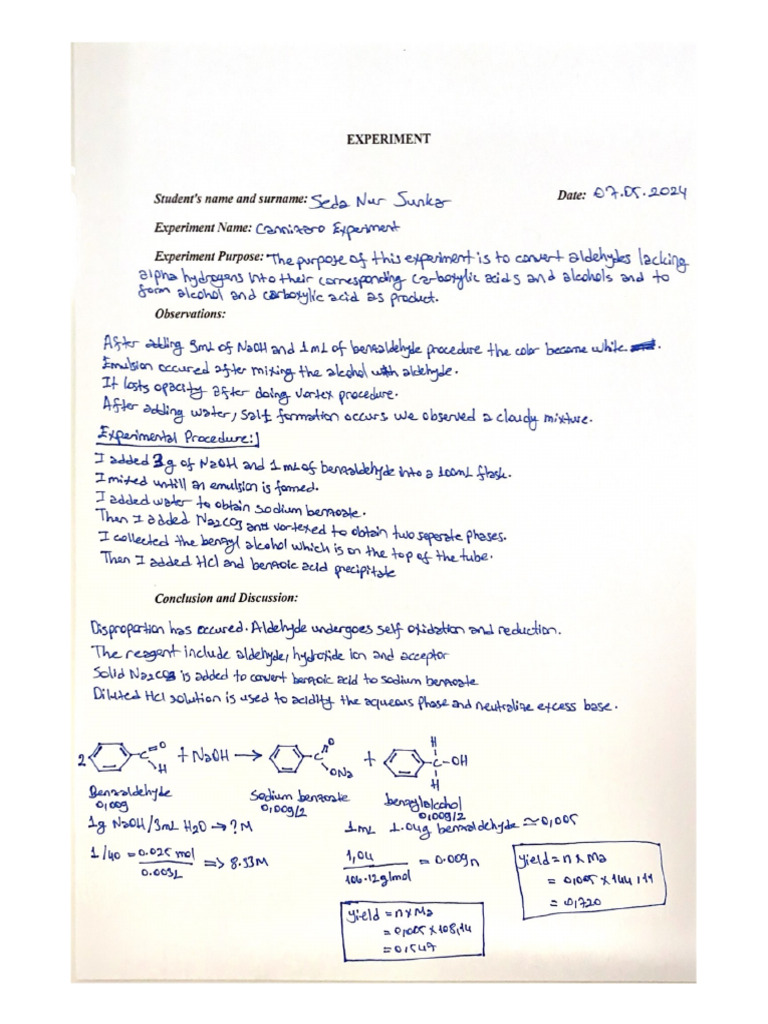 EXPERIMENT
Student's name and surname: Seda Nur Sunkar Date: 07.05.2024
Experiment Name: Cannizaro Experiment
Experiment Purpose: The purpose of this experiment is to convert aldehydes lacking
alpha hydrogens into their corresponding carboxylic acids and alcohols and to
form alcohol and carboxylic acid as product.
Observations:
After adding 3mL of NaOH and 1mL of benzaldehyde procedure the color become white.
Emulsion occured after mixing the alcohol with aldehyde.
It losts opacity after doing vortex procedure.
After adding water, salt formation occurs we observed a cloudy mixture.
Experimental Procedure:
I added 3g of NaOH and 1mL of benzaldehyde into a 100mL flask.
I mixed untill an emulsion is formed.
I added water to obtain sodium benzoate.
Then I added Na2CO3 and vortexed to obtain two seperate phases.
I collected the benzyl alcohol which is on the top of the tube.
Then I added HCl and benzoic acid precipitate
Conclusion and Discussion:
Disproportion has occured. Aldehyde undergoes self oxidation and reduction.
The reagent include aldehyde, hydroxide ion and acceptor
Solid Na2CO3 is added to convert benzoic acid to sodium benzoate
Diluted HCl solution is used to acidity the aqueous phase and neutralize excess base.
2 C =O H + NaOH → C =O ONa + H C-OH H
Benzaldehyde Sodium benzoate benzylalcohol
0,009 0,009/2 0,009/2
1g NaOH/3mL H2O → ? M 1mL 1.04g benzaldehyde ≃ 0,005
1/40 = 0.025 mol / 0.003L => 8.33M
1,04 / 106.12g/mol = 0.009n
yield = n x Ma
= 0,005 x 144,11
= 0,720
yield = n x Ma
= 0,005 x 108,14
= 0,547